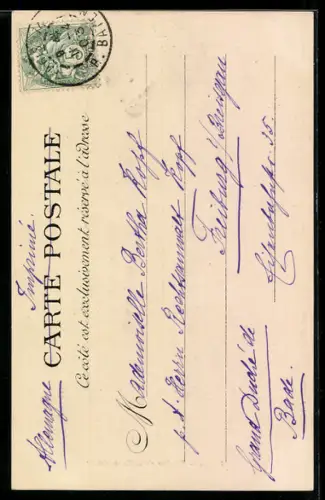 Allemagne Imprimé.
CARTE POSTALE
Ce côté est exclusivement réservé à l'adresse
Mademoiselle Bertha Kopf
p. A. Herrn Rechtsanwalt Kopf
Freiburg /Breisgau
Grand Duché de
Bade.